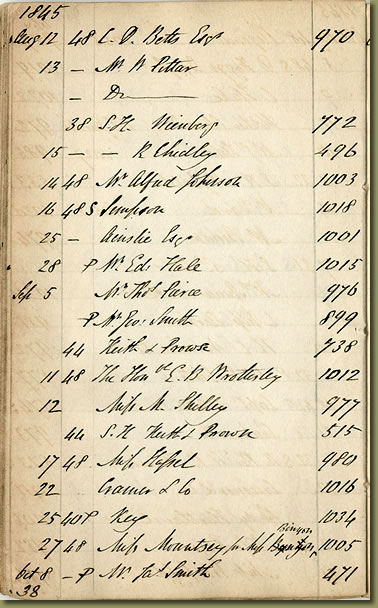 1845
Aug 12 48 C. D. Betts Esqr 970
13 — Mr W Pittar
— Do
38 S.H. Weinberg 772
15 — — R Chidley 496
14 48 Mr Alfred Johnson 1003
16 48 S Simpson 1018
25 — Ainslie Esqr 1001
28 P Mr Edd Hale 1015
Sep 5 Mr Thos Pierce 976
P Mr Geo: Smith 899
44 Keith & Prowse 738
11 48 The Honble E. B Wrottesley 1012
12 Miss M. Shelley 977
44 S.H Keith & Prowse 515
17 48 Miss 980
22 Cramer & Co 1016
25 40 P Key 1034
Binyon
27 48 Miss Mountsey pr Miss 1005
Oct 8 — P Mr Jas Smith 471
38